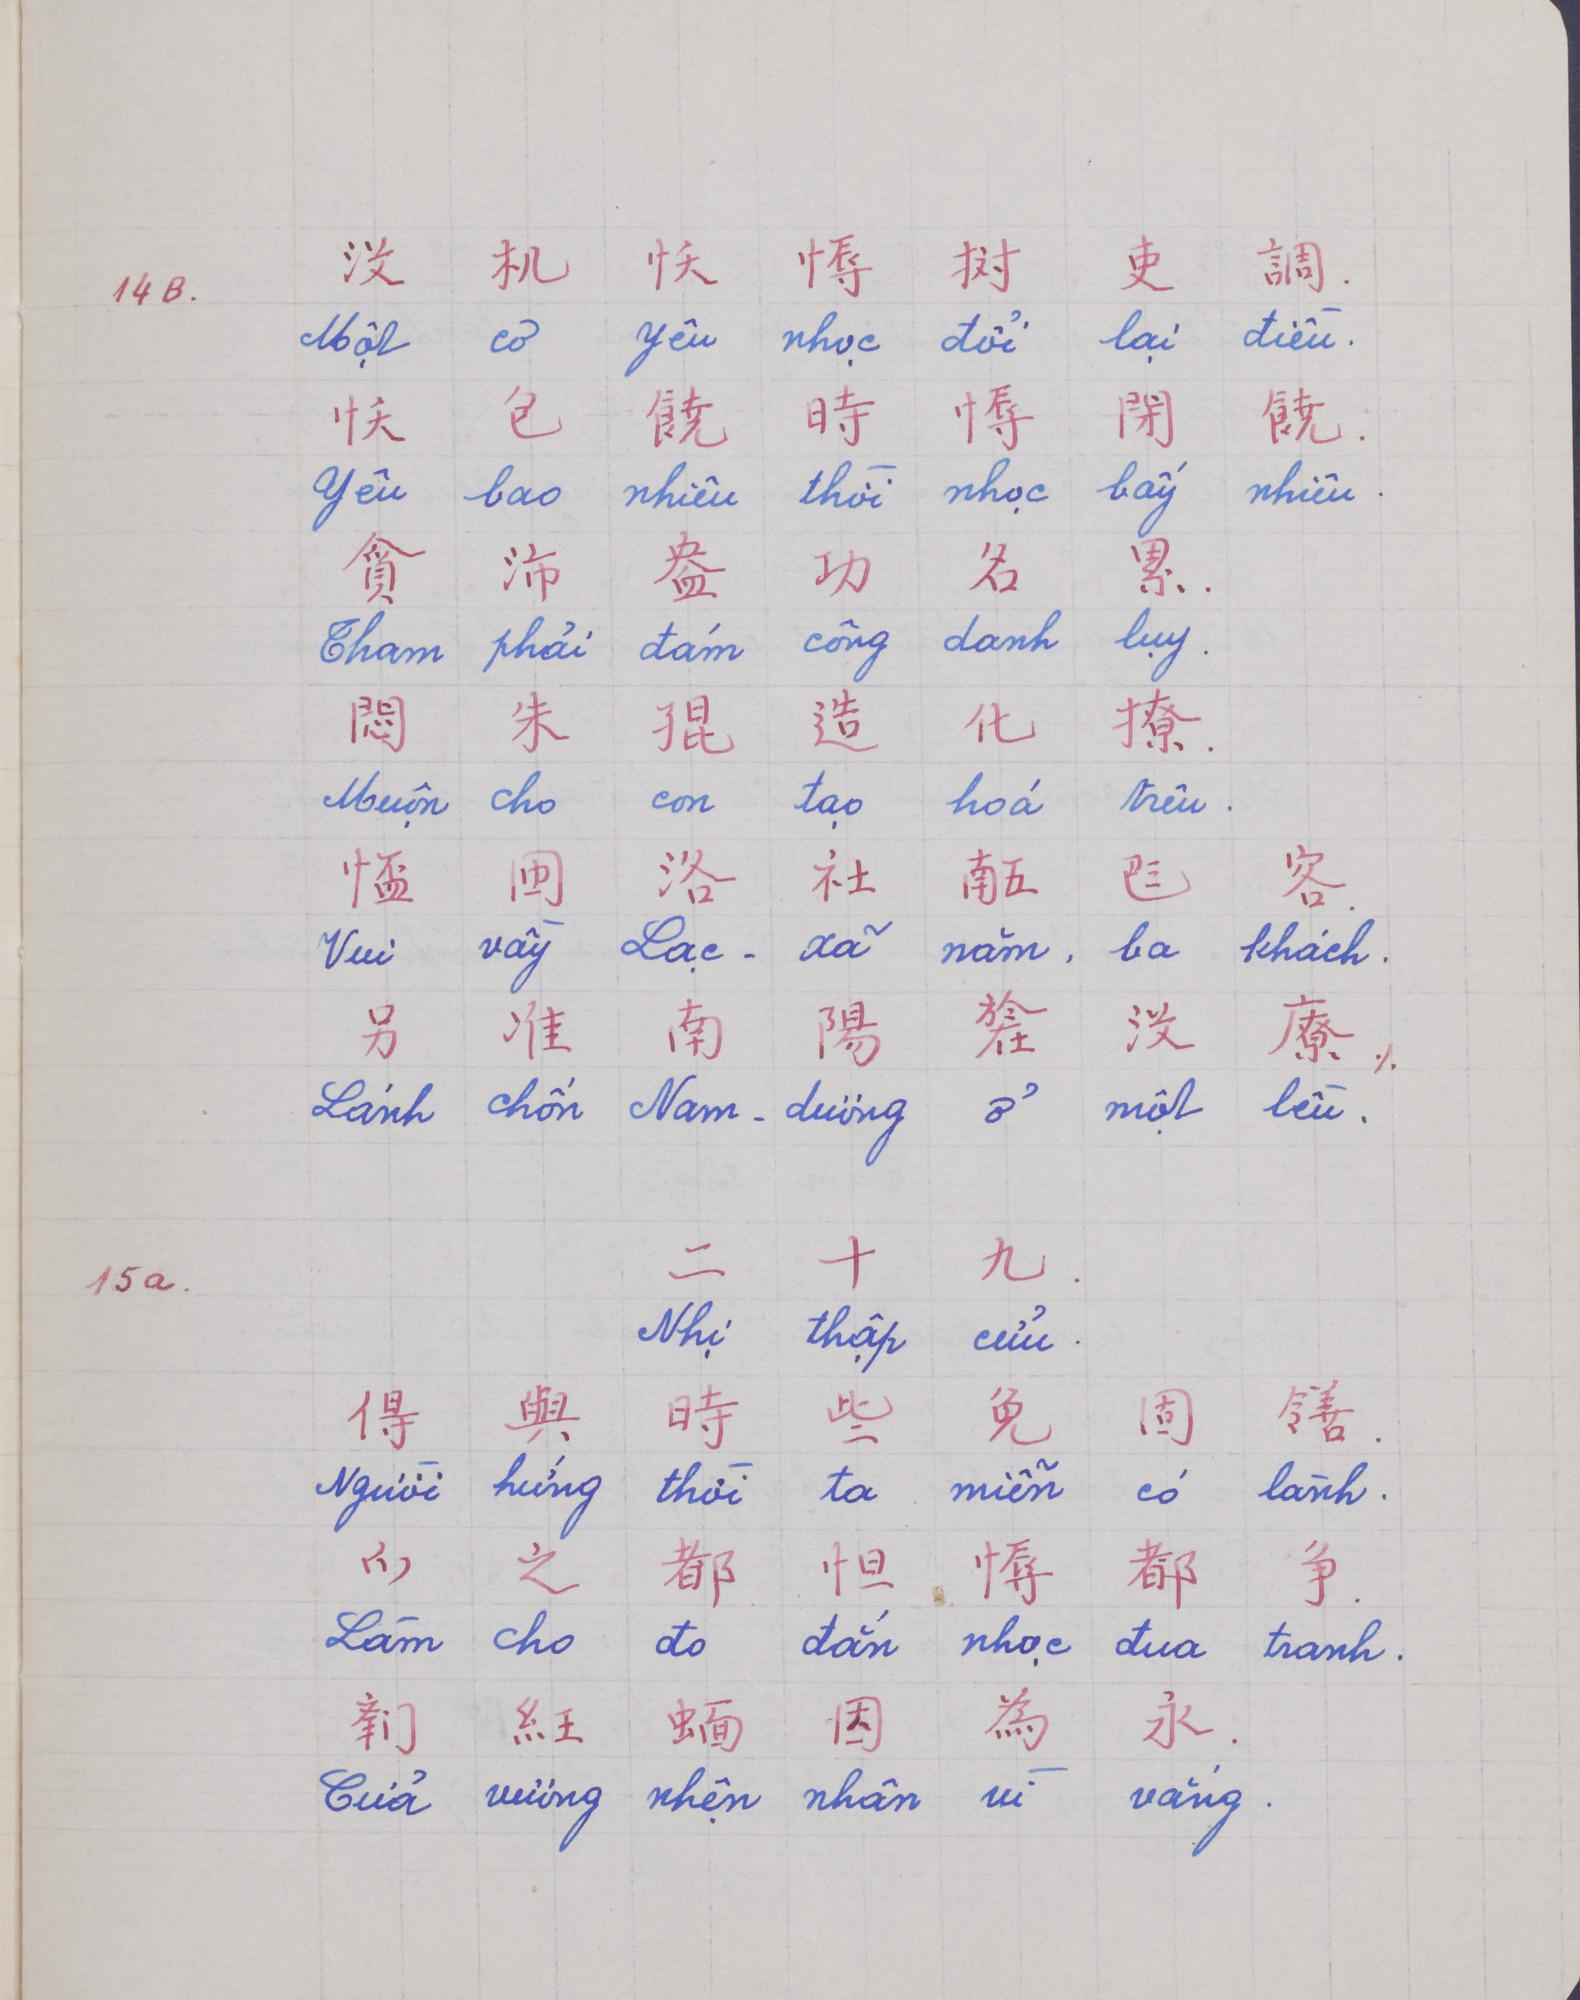 14B.
沒 机 㤇 愽 樹 吏 調.
Một cơ yêu nhọc đổi lại điều.
㤇 包 饒 時 愽 閉 饒.
Yêu bao nhiêu thời nhọc bấy nhiêu.
貪 沛 盎 功 名 累.
Tham phải đám công danh lụy.
悶 朱 猑 造 化 撩.
Muộn cho con tạo hoá trêu.
洛 社 𠄼 𠀧 客.
Vui vầy Lạc - xã năm, ba khách.
另 准 南 陽 沒 寮 ./.
Lánh chốn Nam - dương ở một lều.
15a.
二 十 九.
Nhị thập cửu.
得 與 時 些 免 固 𫅜.
Người hứng thời ta miễn có lành.
之 都 怛 愽 都 爭.
Làm cho đo đắn nhọc đua tranh.
紝 蛔 因 為 永.
Cửa vương nhện nhân vì vắng.